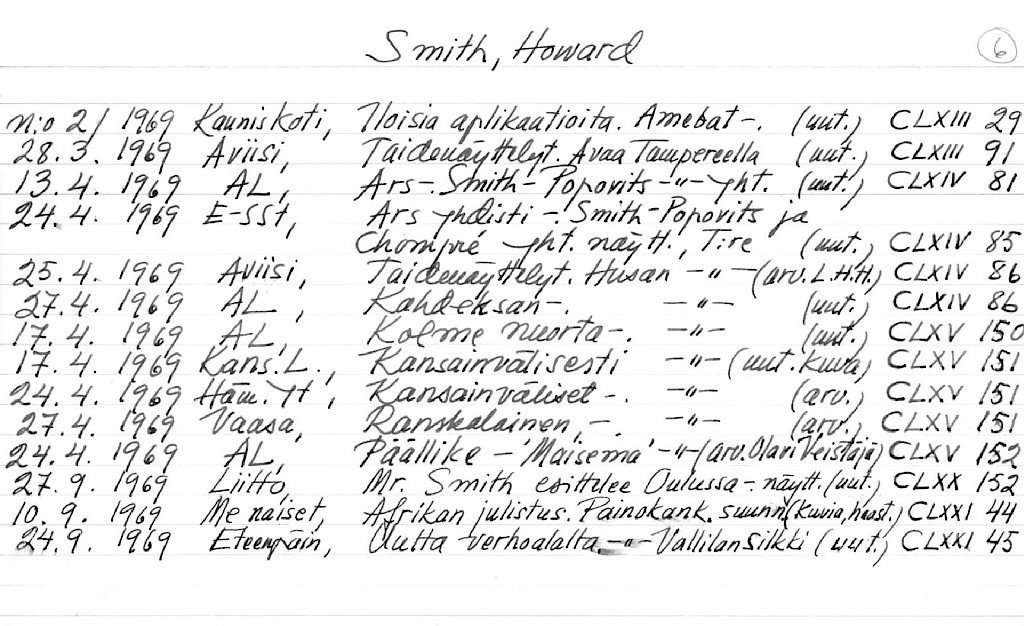 Smith, Howard
6
N:o 2/ 1969 Kauniskoti, Iloisia aplikaatioita. Amebat-. (uut.) CLXIII 29
28.3. 1969 Aviisi, Taidenäyttelyt. Avaa Tampereella (uut.) CLXIII 91
13.4. 1969 AL, Ars-. Smith-Popovits -"- yht. (uut.) CLXIV 81
24.4. 1969 E-SSt, Ars yhdisti -. Smith-Popovits ja
Chompré yht. näytt., T:re (uut.) CLXIV 85
25.4. 1969 Aviisi, Taidenäyttelyt. Husan -"- (arv. L.H.H) CLXIV 86
27.4. 1969 AL, Kahdeksan-. -"- (uut.) CLXIV 86
17.4. 1969 AL, Kolme nuorta-. -"- (uut.) CLXV 150
17.4. 1969 Kans.L., Kansainvälisesti -"- (uut. kuva) CLXV 151
24.4. 1969 Häm.Yt, Kansainväliset-. -"- (arv.) CLXV 151
27.4. 1969 Vaasa, Ranskalainen,-. -"- (arv.) CLXV 151
24.4. 1969 AL, Päällike - 'Maisema' -"- (arv. Olari Veistäjä) CLXV 152
27.9. 1969 Liitto, Mr. Smith esittelee Oulussa-. näytt. (uut.) CLXX 152
10.9. 1969 Me naiset, Afrikan julistus. Painokank. suunn (kuvia, haast.) CLXXI 44
24.9. 1969 Eteenpäin, Uutta verhoalalta. -"- Vallilan Silkki (uut.) CLXXI 45